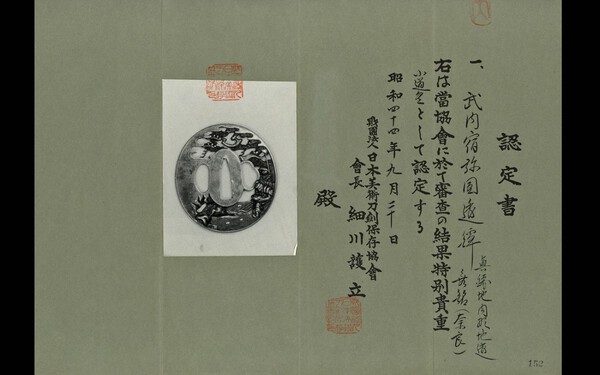 認定書
一、武内宿弥図透鐔 真鍮地肉彫地透
無銘(奈良)
右は當協會に於て審査の結果特別貴重
小道具として認定する
昭和四十四年九月三十日
財團法人日本美術刀劍保存協會
會長 細川護立
殿
152